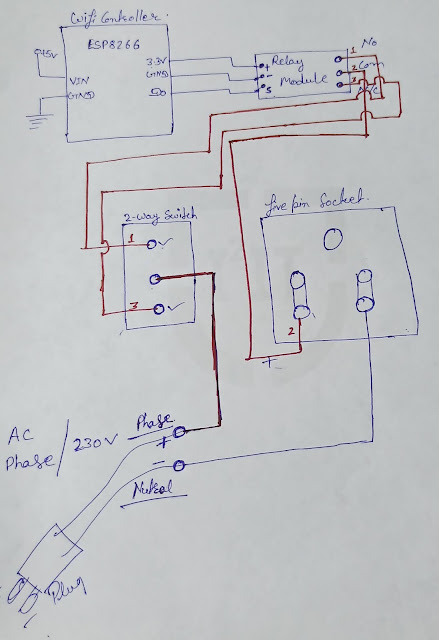 Wifi Controller
ESP8266
+5V
3.3V
VIN
GND
GND
Relay
Module
+
-
S
1
No
2
Com
3
N/C
2-way Switch
1
3
five pin Socket
2
+
AC
Phase / 230V
Phase
+
-
Nutral
Plug